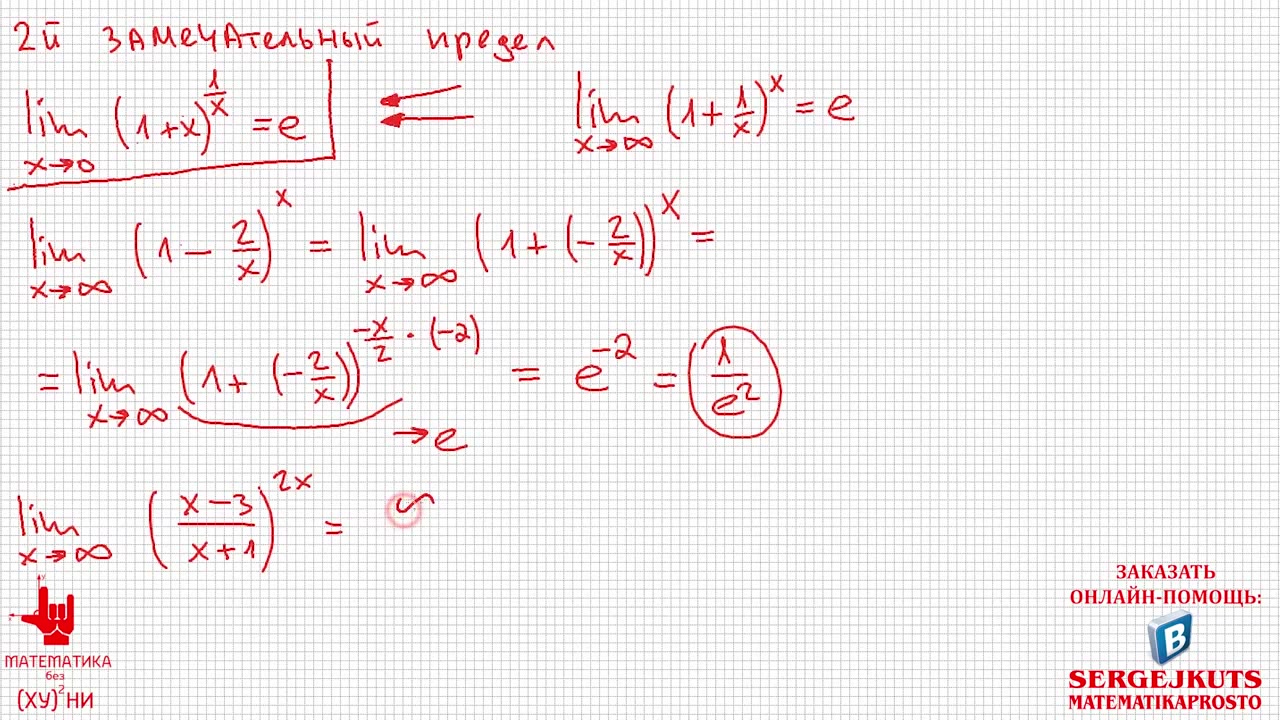 2й замечательный предел
lim x→0 (1+x)^(1/x) = e
lim x→∞ (1+1/x)^x = e
lim x→∞ (1 − 2/x)^x = lim x→∞ (1+(−2/x))^x =
= lim x→∞ (1+(−2/x))^(−x/2 · (−2)) = e^(−2) = 1/e^2
→ e
lim x→∞ ((x−3)/(x+1))^(2x) =
y
x
МАТЕМАТИКА
без
(ХУ)²НИ
ЗАКАЗАТЬ
ОНЛАЙН-ПОМОЩЬ:
B
SERGEJKUTS
MATEMATIKAPROSTO